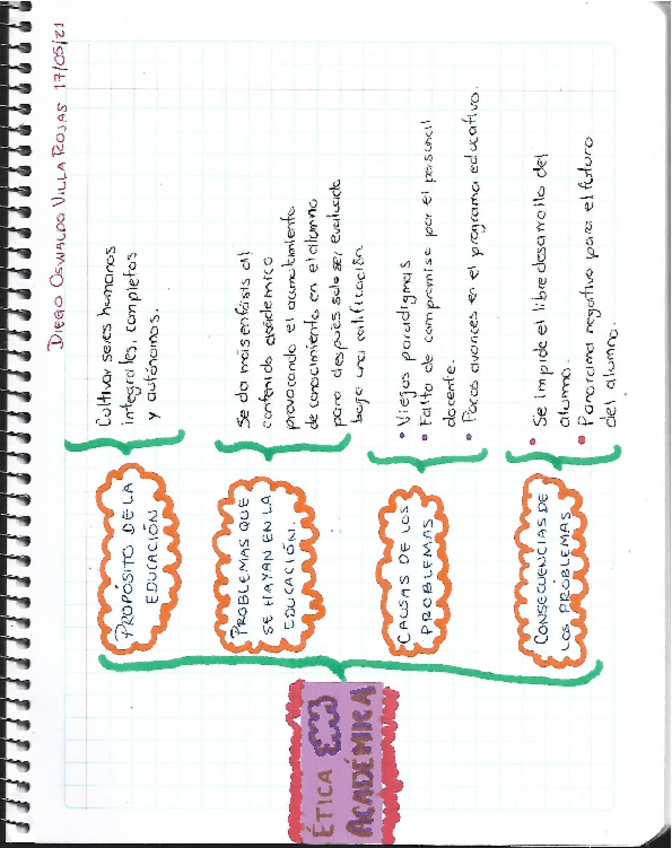 DIEGO OSWALDO VILLA ROJAS 17/05/21
ÉTICA
ACADÉMICA
PROPÓSITO DE LA
EDUCACIÓN
Cultivar seres humanos
integrales, completos
y autónomos.
PROBLEMAS QUE
SE HAYAN EN LA
EDUCACIÓN.
Se da más enfásis al
contenido académico
provocando el acumulamiento
de conocimiento en el alumno
para después solo ser evaluado
bajo una calificación.
CAUSAS DE LOS
PROBLEMAS
• Viejos paradigmas
• Falta de compromiso por el personal
docente.
• Pocos avances en el programa educativo.
CONSECUENCIAS DE
LOS PROBLEMAS
• Se impide el libre desarrollo del
alumno.
• Panorama negativo para el futuro
del alumno.